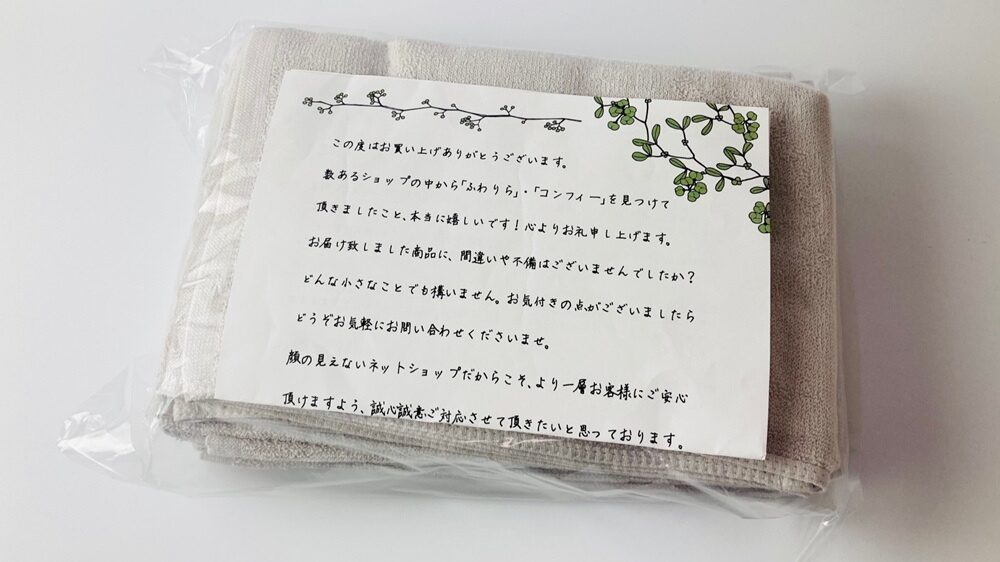 この度はお買い上げありがとうございます。
数あるショップの中から「ふわりら」・「コンフィー」を見つけて
頂きましたこと、本当に嬉しいです！心よりお礼申し上げます。
お届け致しました商品に、間違いや不備はございませんでしたか？
どんな小さなことでも構いません。お気付きの点がございましたら
どうぞお気軽にお問い合わせくださいませ。
顔の見えないネットショップだからこそ、より一層お客様にご安心
頂けますよう、誠心誠意ご対応させて頂きたいと思っております。